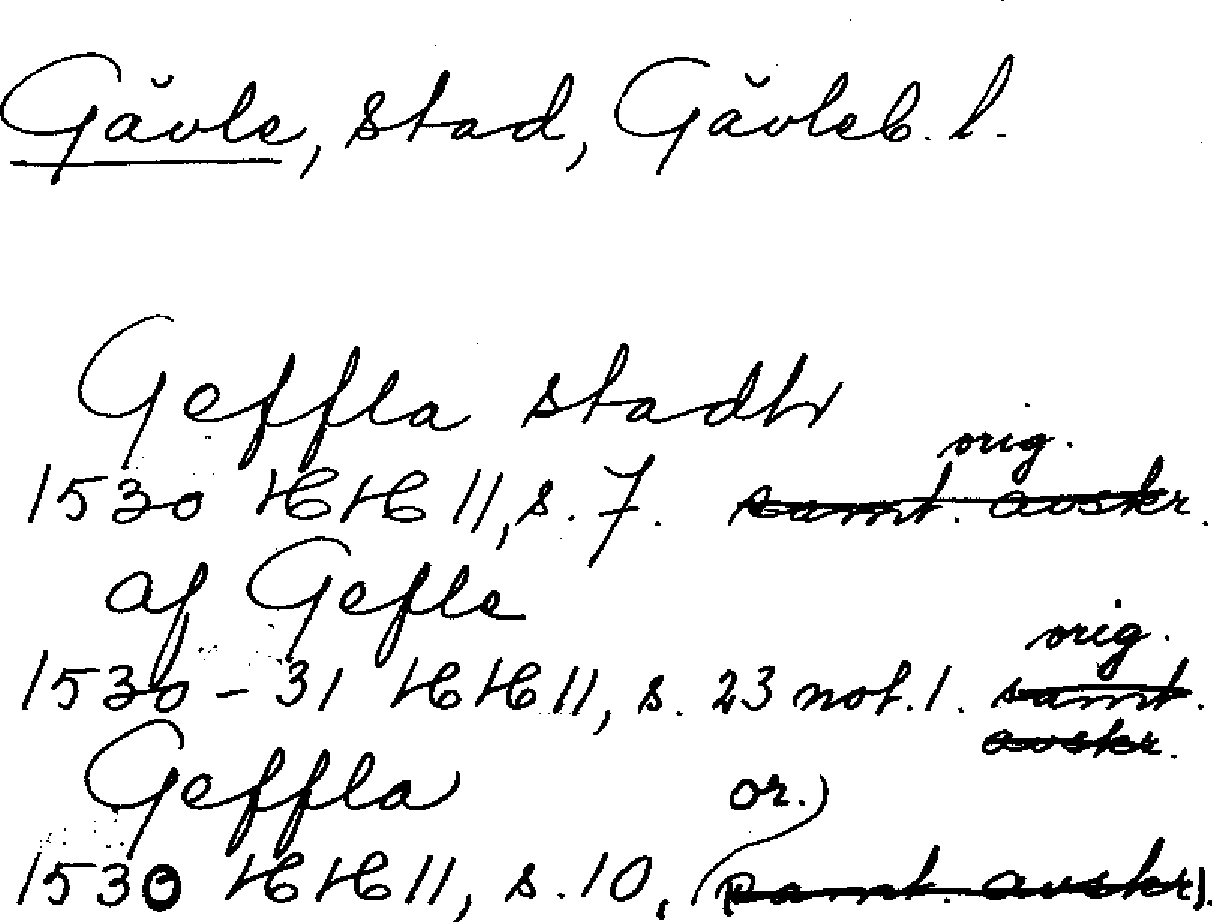 Gävle, stad, Gävleb. l.
Geffla stadh
orig.
1530 HH 11, s. 7. samt. avskr.
af Gefle
orig.
1530-31 HH 11, s. 23 not. 1. samt.
avskr.
Geffla or.)
1530 HH 11, s. 10, (samt. avskr).